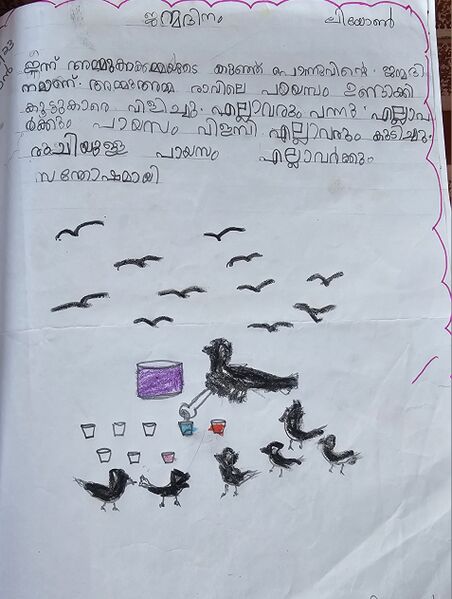 ജന്മദിനം ലിയോൺ
ഇന്ന് അമ്മുക്കാക്കമ്മയുടെ കുഞ്ഞ് പൊന്നുവിന്റെ ജന്മദി
നമാണ്. അമ്മുത്തമ്മ രാവിലെ പായസം ഉണ്ടാക്കി
കൂട്ടുകാരെ വിളിച്ചു. എല്ലാവരും വന്നു. എല്ലാവ
ർക്കും പായസം വിളമ്പി എല്ലാവരും കുടിച്ചു.
രുചിയുള്ള പായസം എല്ലാവർക്കും
സന്തോഷമായി